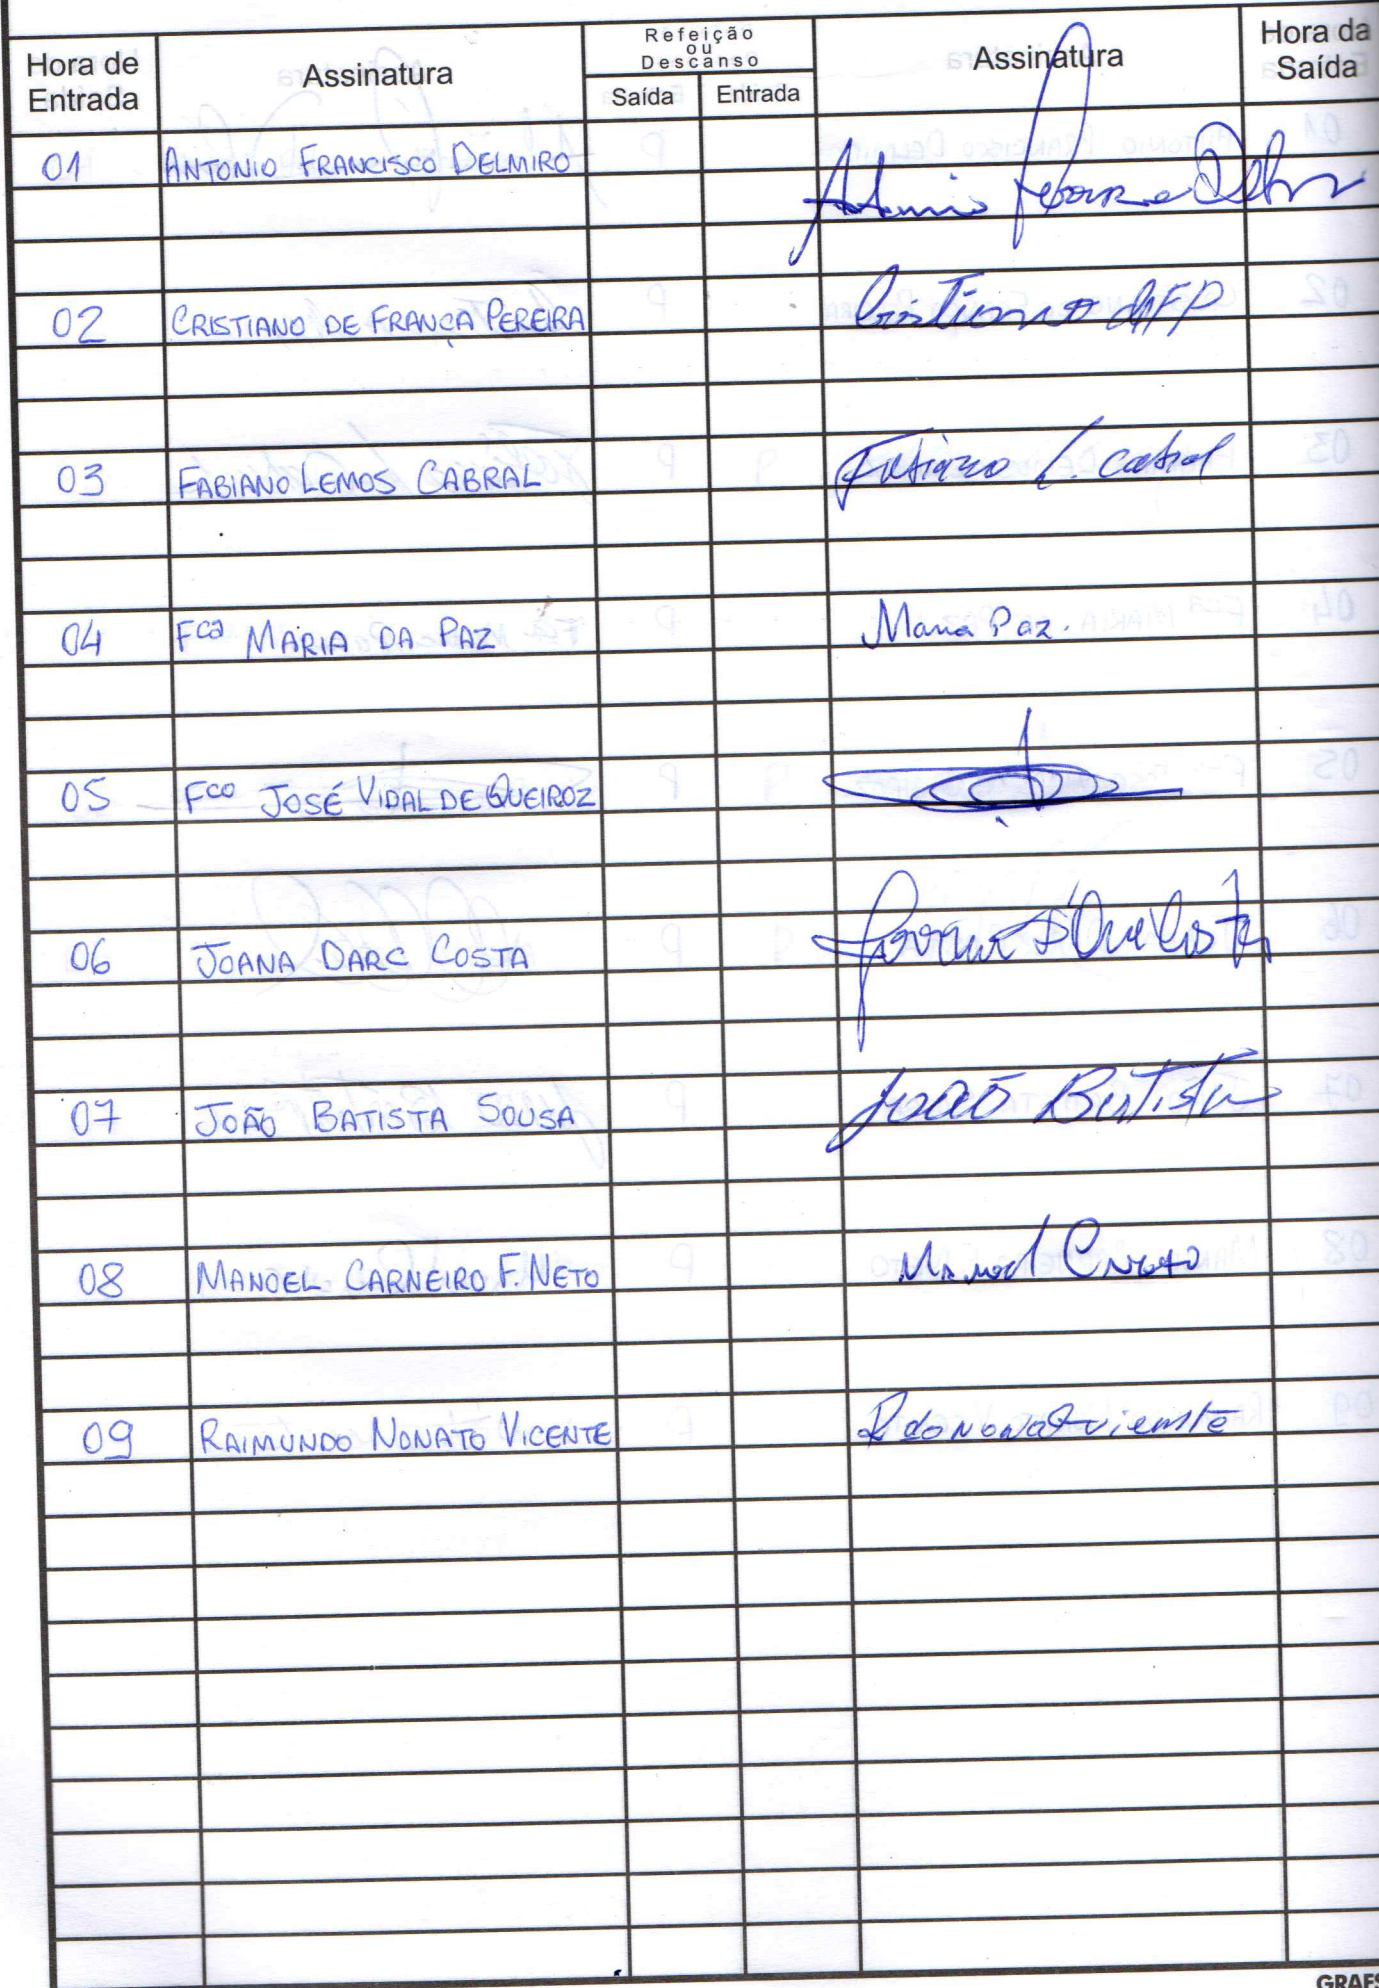 Hora de Entrada Assinatura Refeição ou Descanso Saída Entrada Assinatura Hora da Saída
01 ANTONIO FRANCISCO DELMIRO Antonio
02 CRISTIANO DE FRANÇA PEREIRA Cristiano dFP
03 FABIANO LEMOS CABRAL Fabiano L. Cabral
04 Fca MARIA DA PAZ Maria Paz.
05 Fco JOSÉ VIDAL DE QUEIROZ
06 JOANA DARC COSTA Joana D'Arc Costa
07 JOÃO BATISTA SOUSA João Batista
08 MANOEL CARNEIRO F. NETO Manoel
09 RAIMUNDO NONATO VICENTE Rdo Nonato Viente